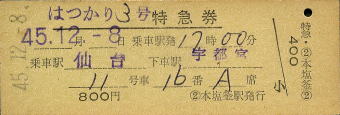 はつかり3号 特急券
45.12.-8 月 日 乗車駅発17時00分
乗車駅 仙台 下車駅 宇都宮
11号車 16番 A席
800円 ②本塩釜駅発行
45.12.-8.
特急・②本塩釜②
400
小